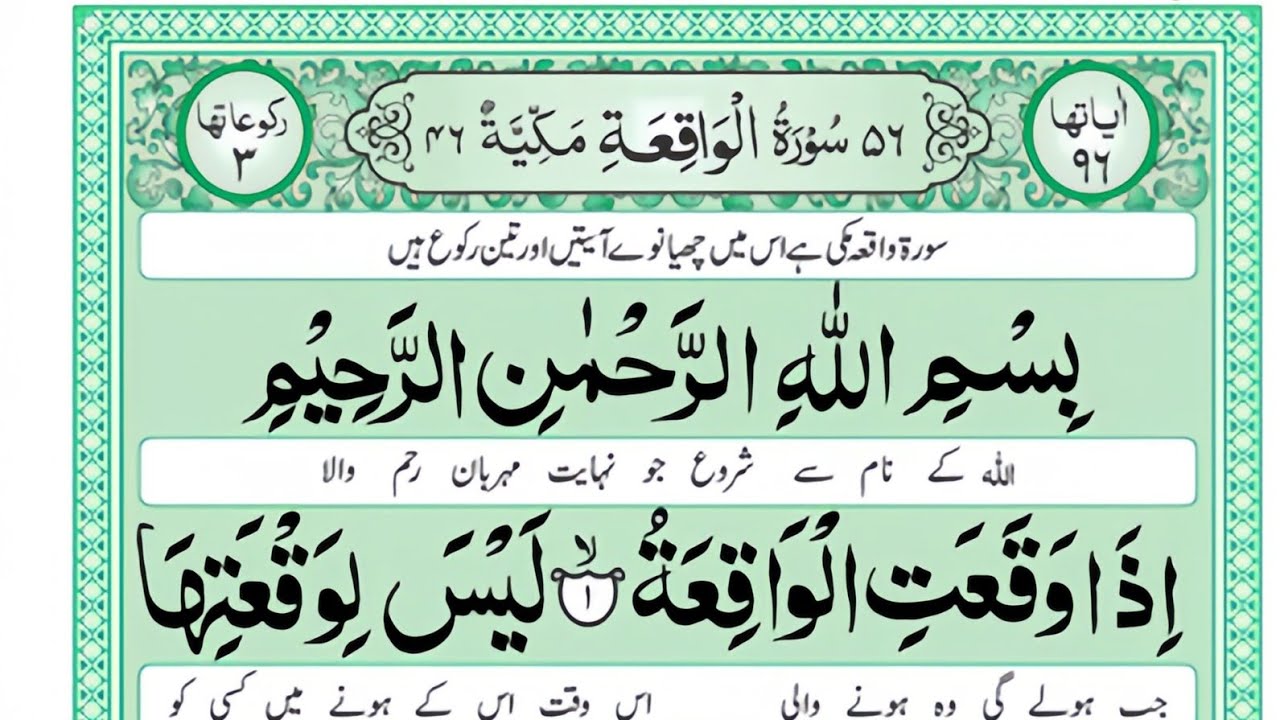 اٰیاتها ۹۶
۵۶ سُوْرَةُ الْوَاقِعَةِ مَكِّيَّةٌ ۴۶
رکوعاتها ۳
سورۃ واقعہ مکی ہے اس میں چھیانوے آیتیں اور تین رکوع ہیں
بِسْمِ اللّٰهِ الرَّحْمٰنِ الرَّحِيْمِ
اللہ کے نام سے شروع جو نہایت مہربان رحم والا
اِذَا وَقَعَتِ الْوَاقِعَةُ ۙ۱ لَيْسَ لِوَقْعَتِهَا
جب ہولے گی وہ ہونے والی اس وقت اس کے ہونے میں کسی کو